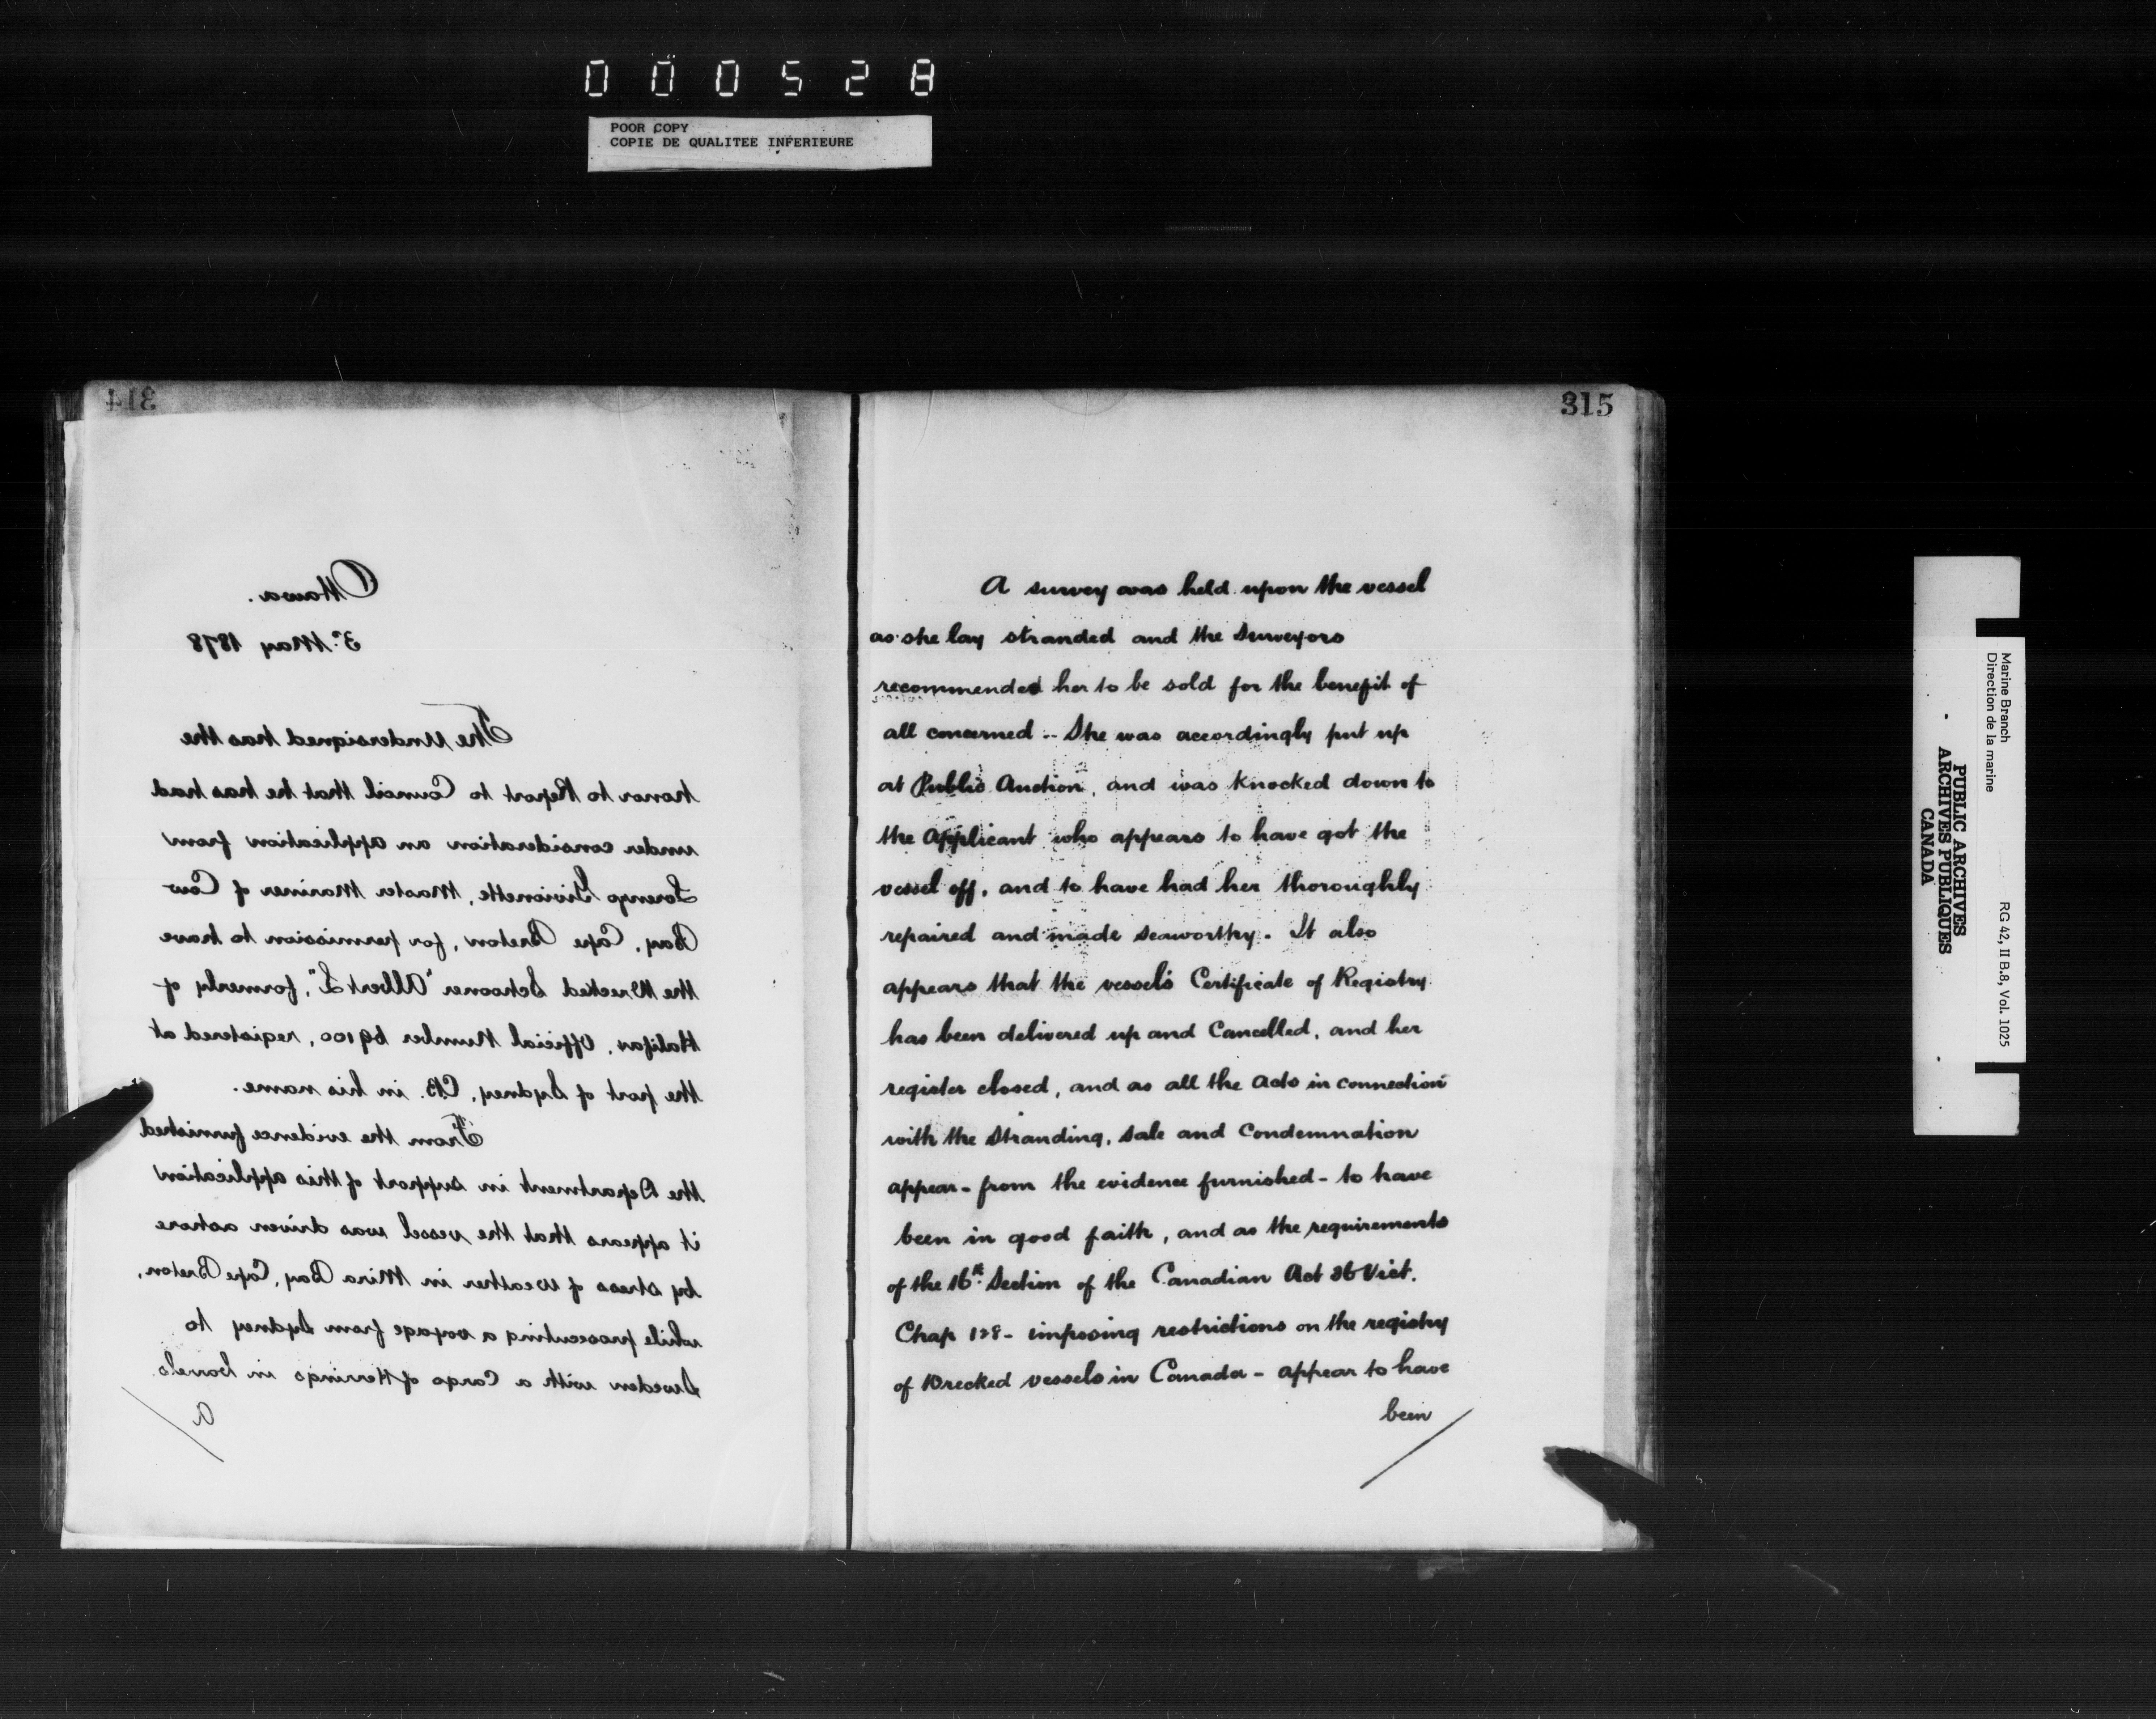 000528
POOR COPY
COPIE DE QUALITEE INFERIEURE
314
Ottawa.
3d. May 1878
The Undersigned has the
honor to Report to Council that he has had
under consideration an application from
Lorenzo Givionette, Master Mariner of Cow
Bay, Cape Breton, for permission to have
the Wrecked Schooner "Albert L", formerly of
Halifax, Official Number 69100, registered at
the port of Sydney, C.B. in his name.
From the evidence furnished
the Department in support of this application
it appears that the vessel was driven ashore
by stress of weather in Mira Bay, Cape Breton,
while prosecuting a voyage from Sydney to
Sweden with a Cargo of Herrings in barrels.
A
315
A survey was held upon the vessel
as she lay stranded and the Surveyors
recommended her to be sold for the benefit of
all concerned -- She was accordingly put up
at Public Auction, and was Knocked down to
the Applicant who appears to have got the
vessel off, and to have had her thoroughly
repaired and made seaworthy. It also
appears that the vessel's Certificate of Registry
has been delivered up and Cancelled, and her
register closed, and as all the Acts in connection
with the Stranding, Sale and Condemnation
appear - from the evidence furnished - to have
been in good faith, and as the requirements
of the 16th Section of the Canadian Act 36 Vict.
Chap 128 - imposing restrictions on the registry
of Wrecked vessels in Canada - appear to have
been
Marine Branch
Direction de la marine
RG 42, II B.8, Vol. 1025
PUBLIC ARCHIVES
ARCHIVES PUBLIQUES
CANADA